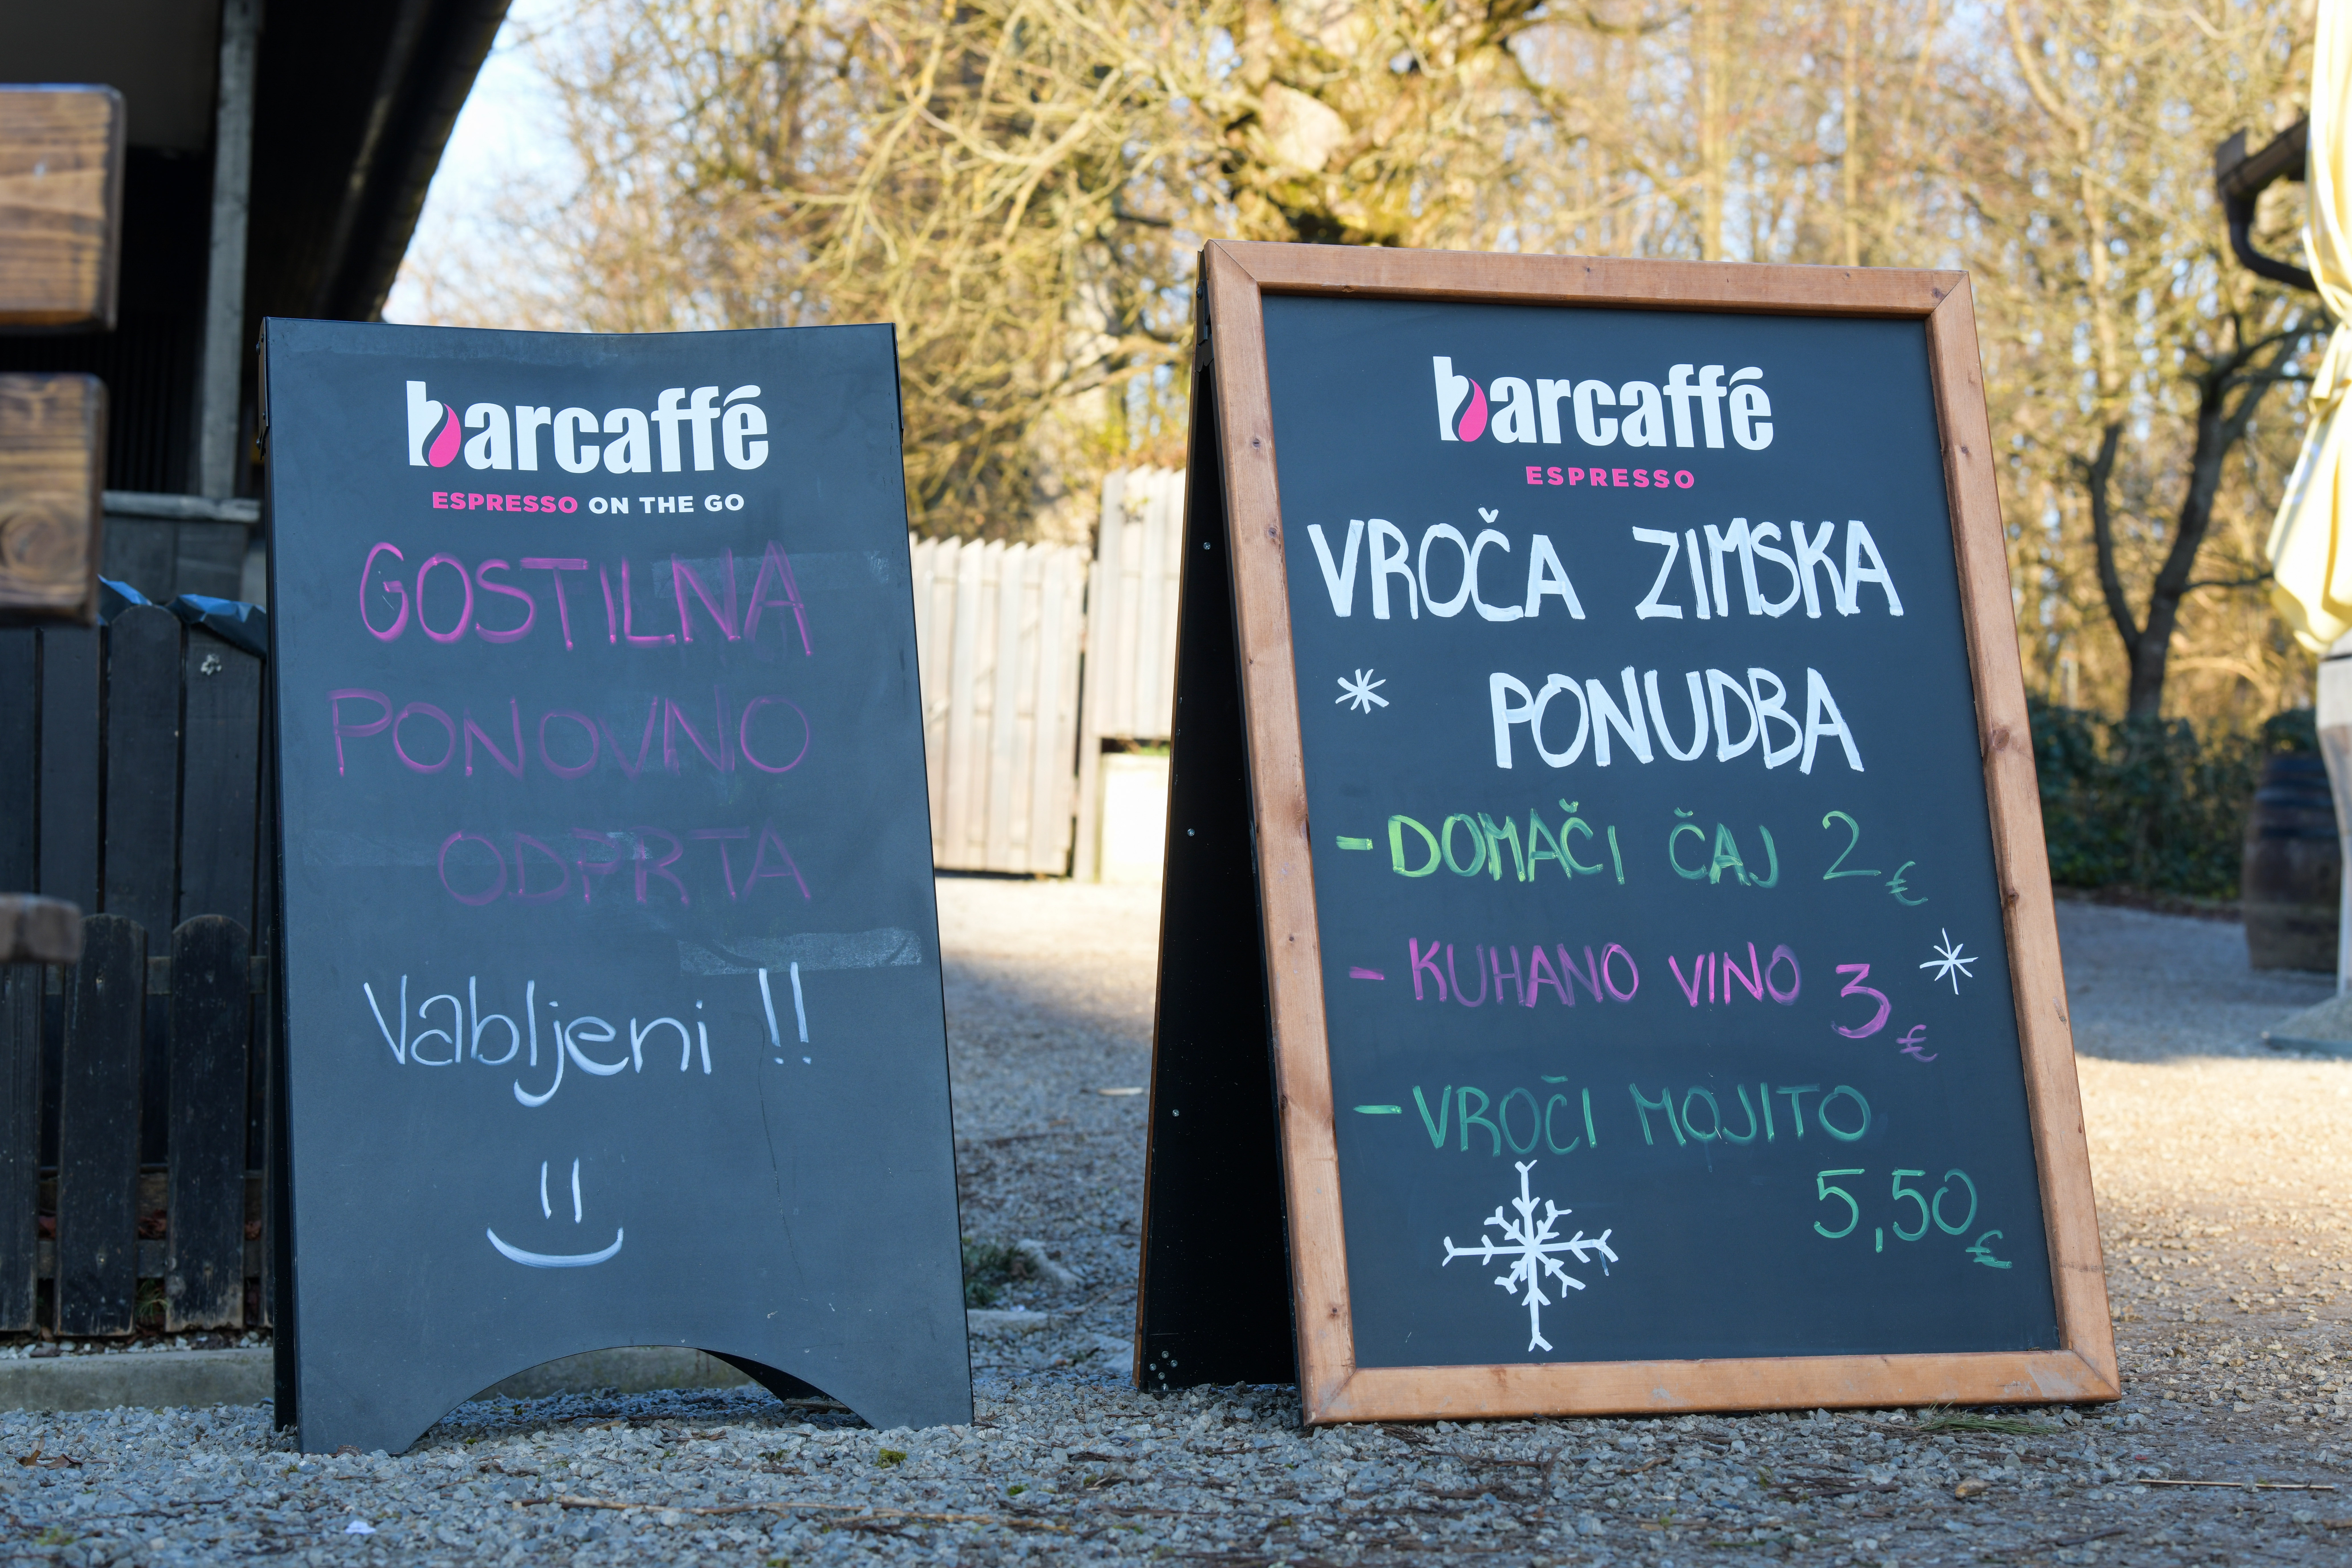 barcaffé
ESPRESSO ON THE GO
GOSTILNA
PONOVNO
ODPRTA
Vabljeni !!
barcaffé
ESPRESSO
VROČA ZIMSKA
PONUDBA
- DOMAČI ČAJ 2€
- KUHANO VINO 3€
- VROČI MOJITO
5,50€